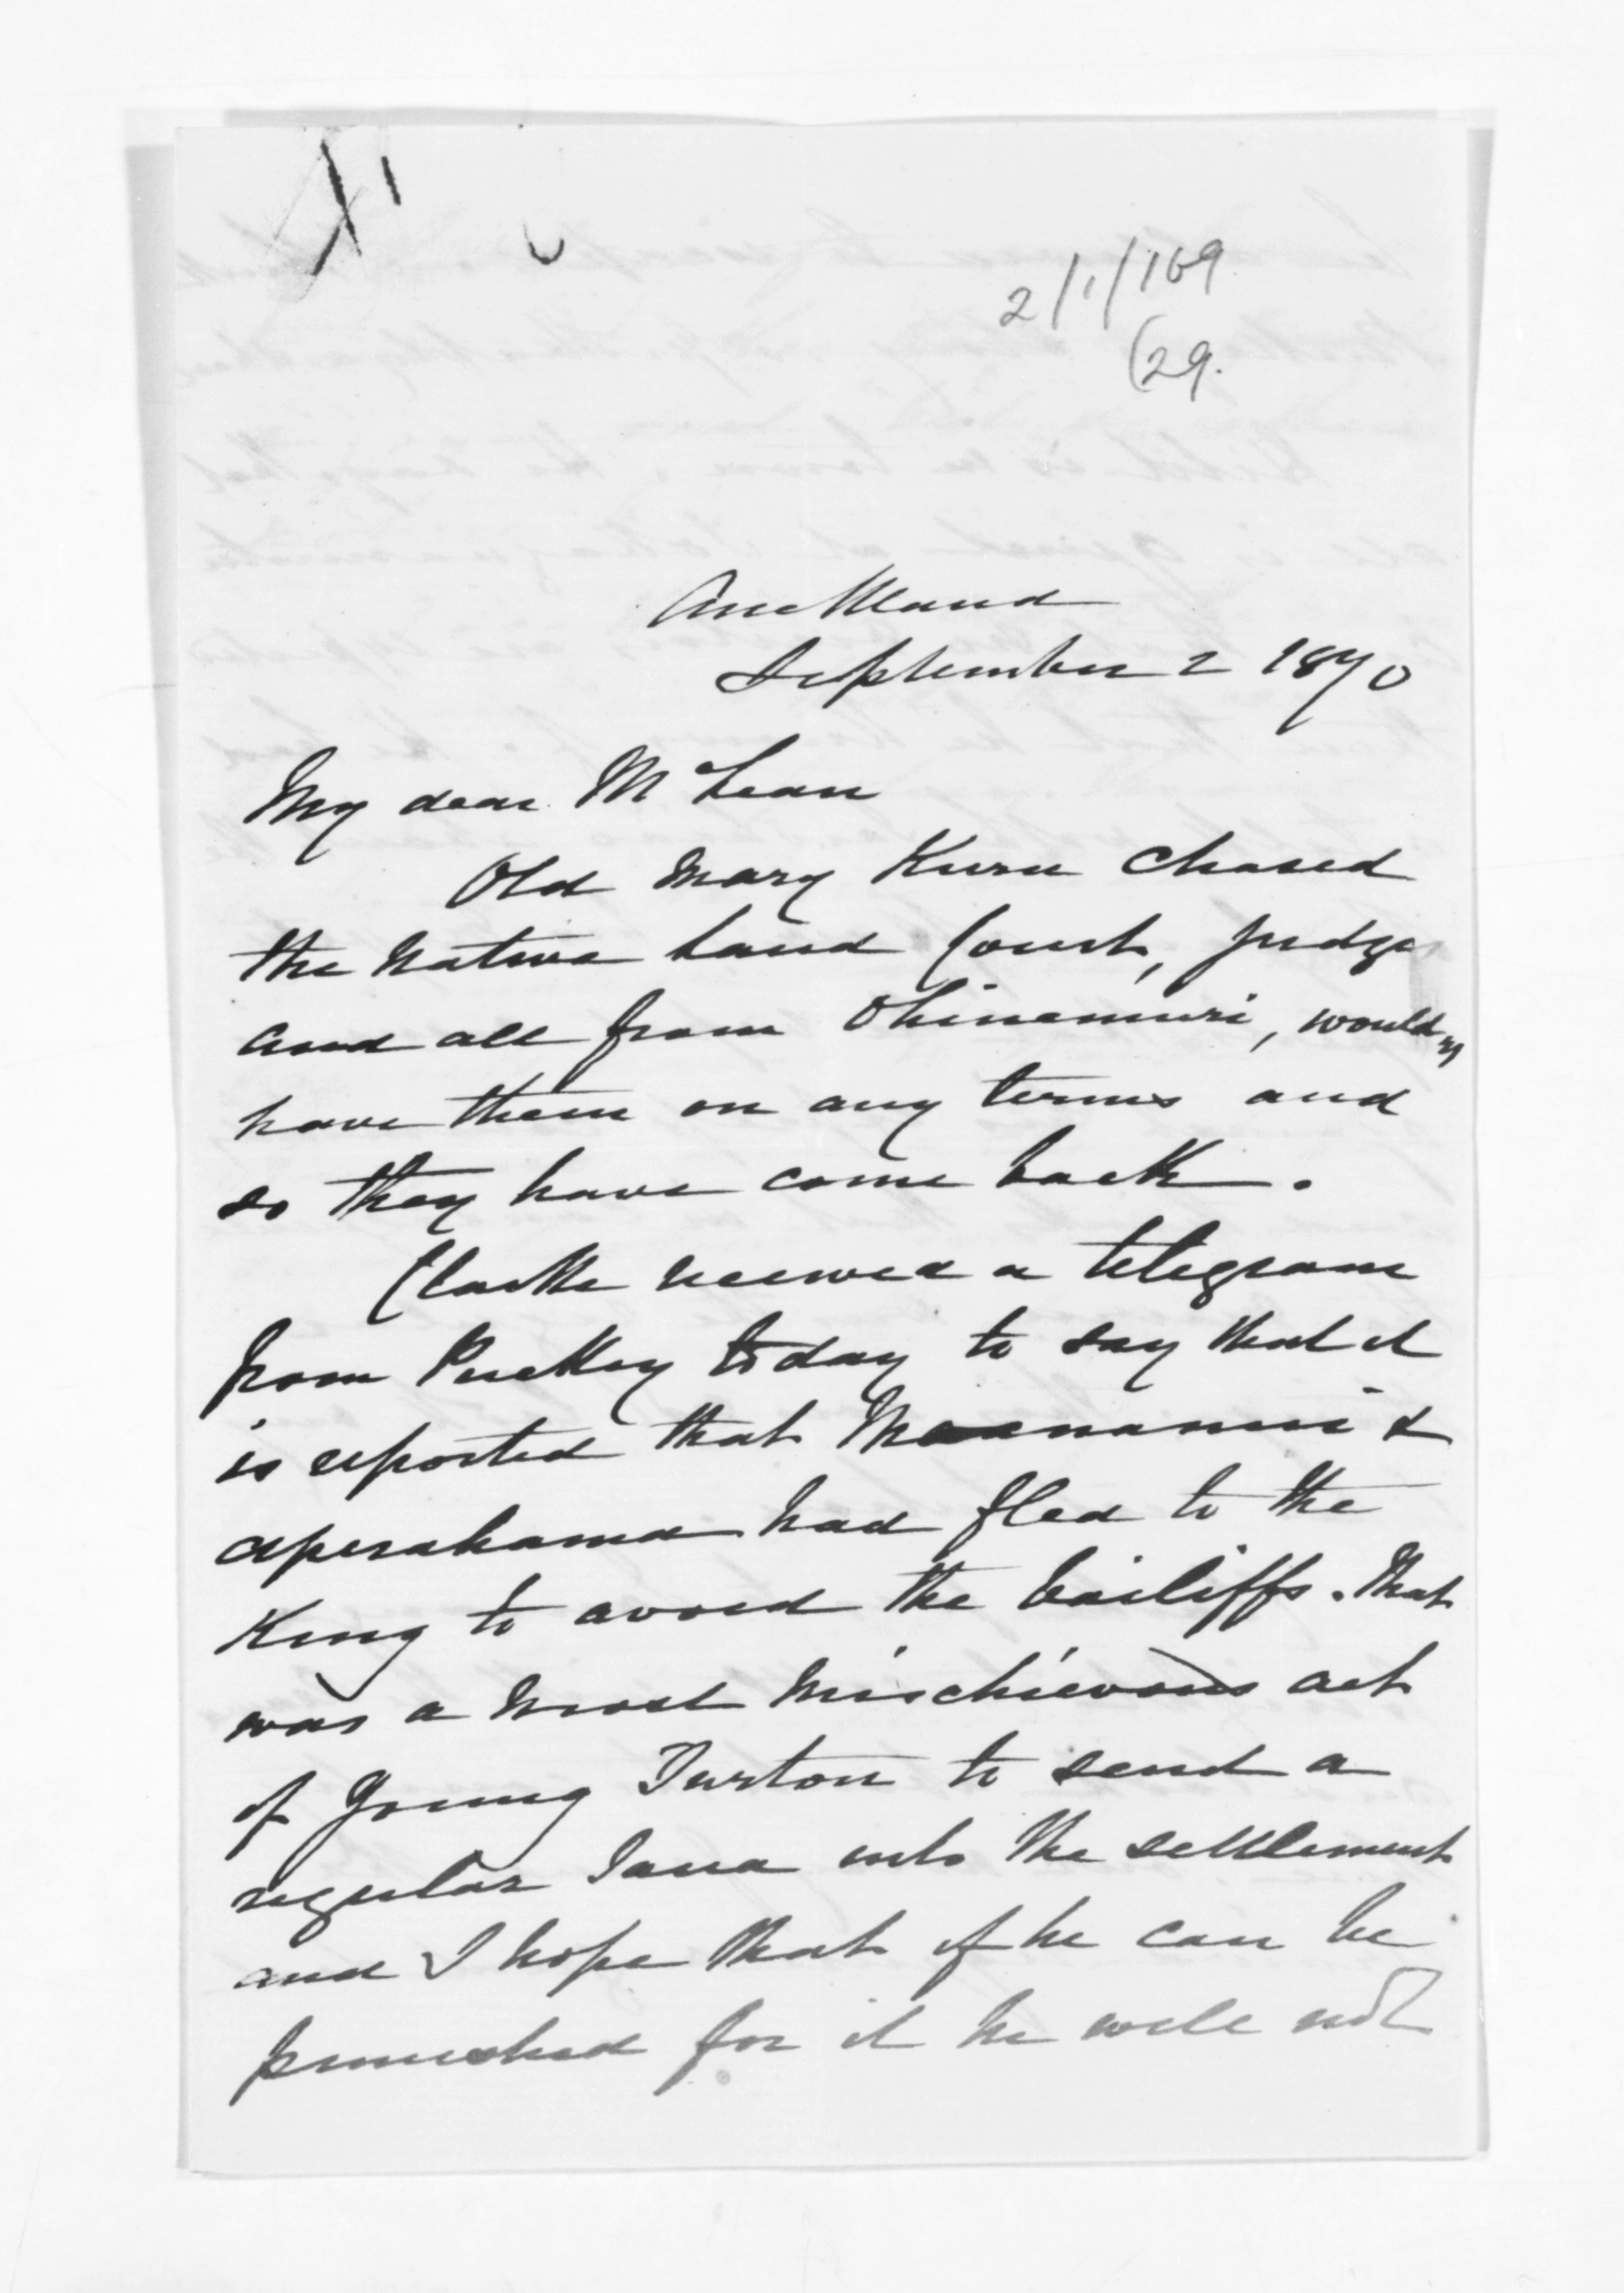 2/1/169
(29.
Auckland
September 2 1870
My dear McLean
Old Mary Kuru chased
the Native Land Court, judge
and all from Ohinemuri, would n
have them on any terms and
so they have come back.
Clarke received a telegram
from Puckey today to say that it
is reported that &
Aperahama had fled to the
King to avoid the bailiffs. That
was a most mischievous act
of young Turton to send a
regular Taua into the settlement
and I hope that if he can be
punished for it he will not